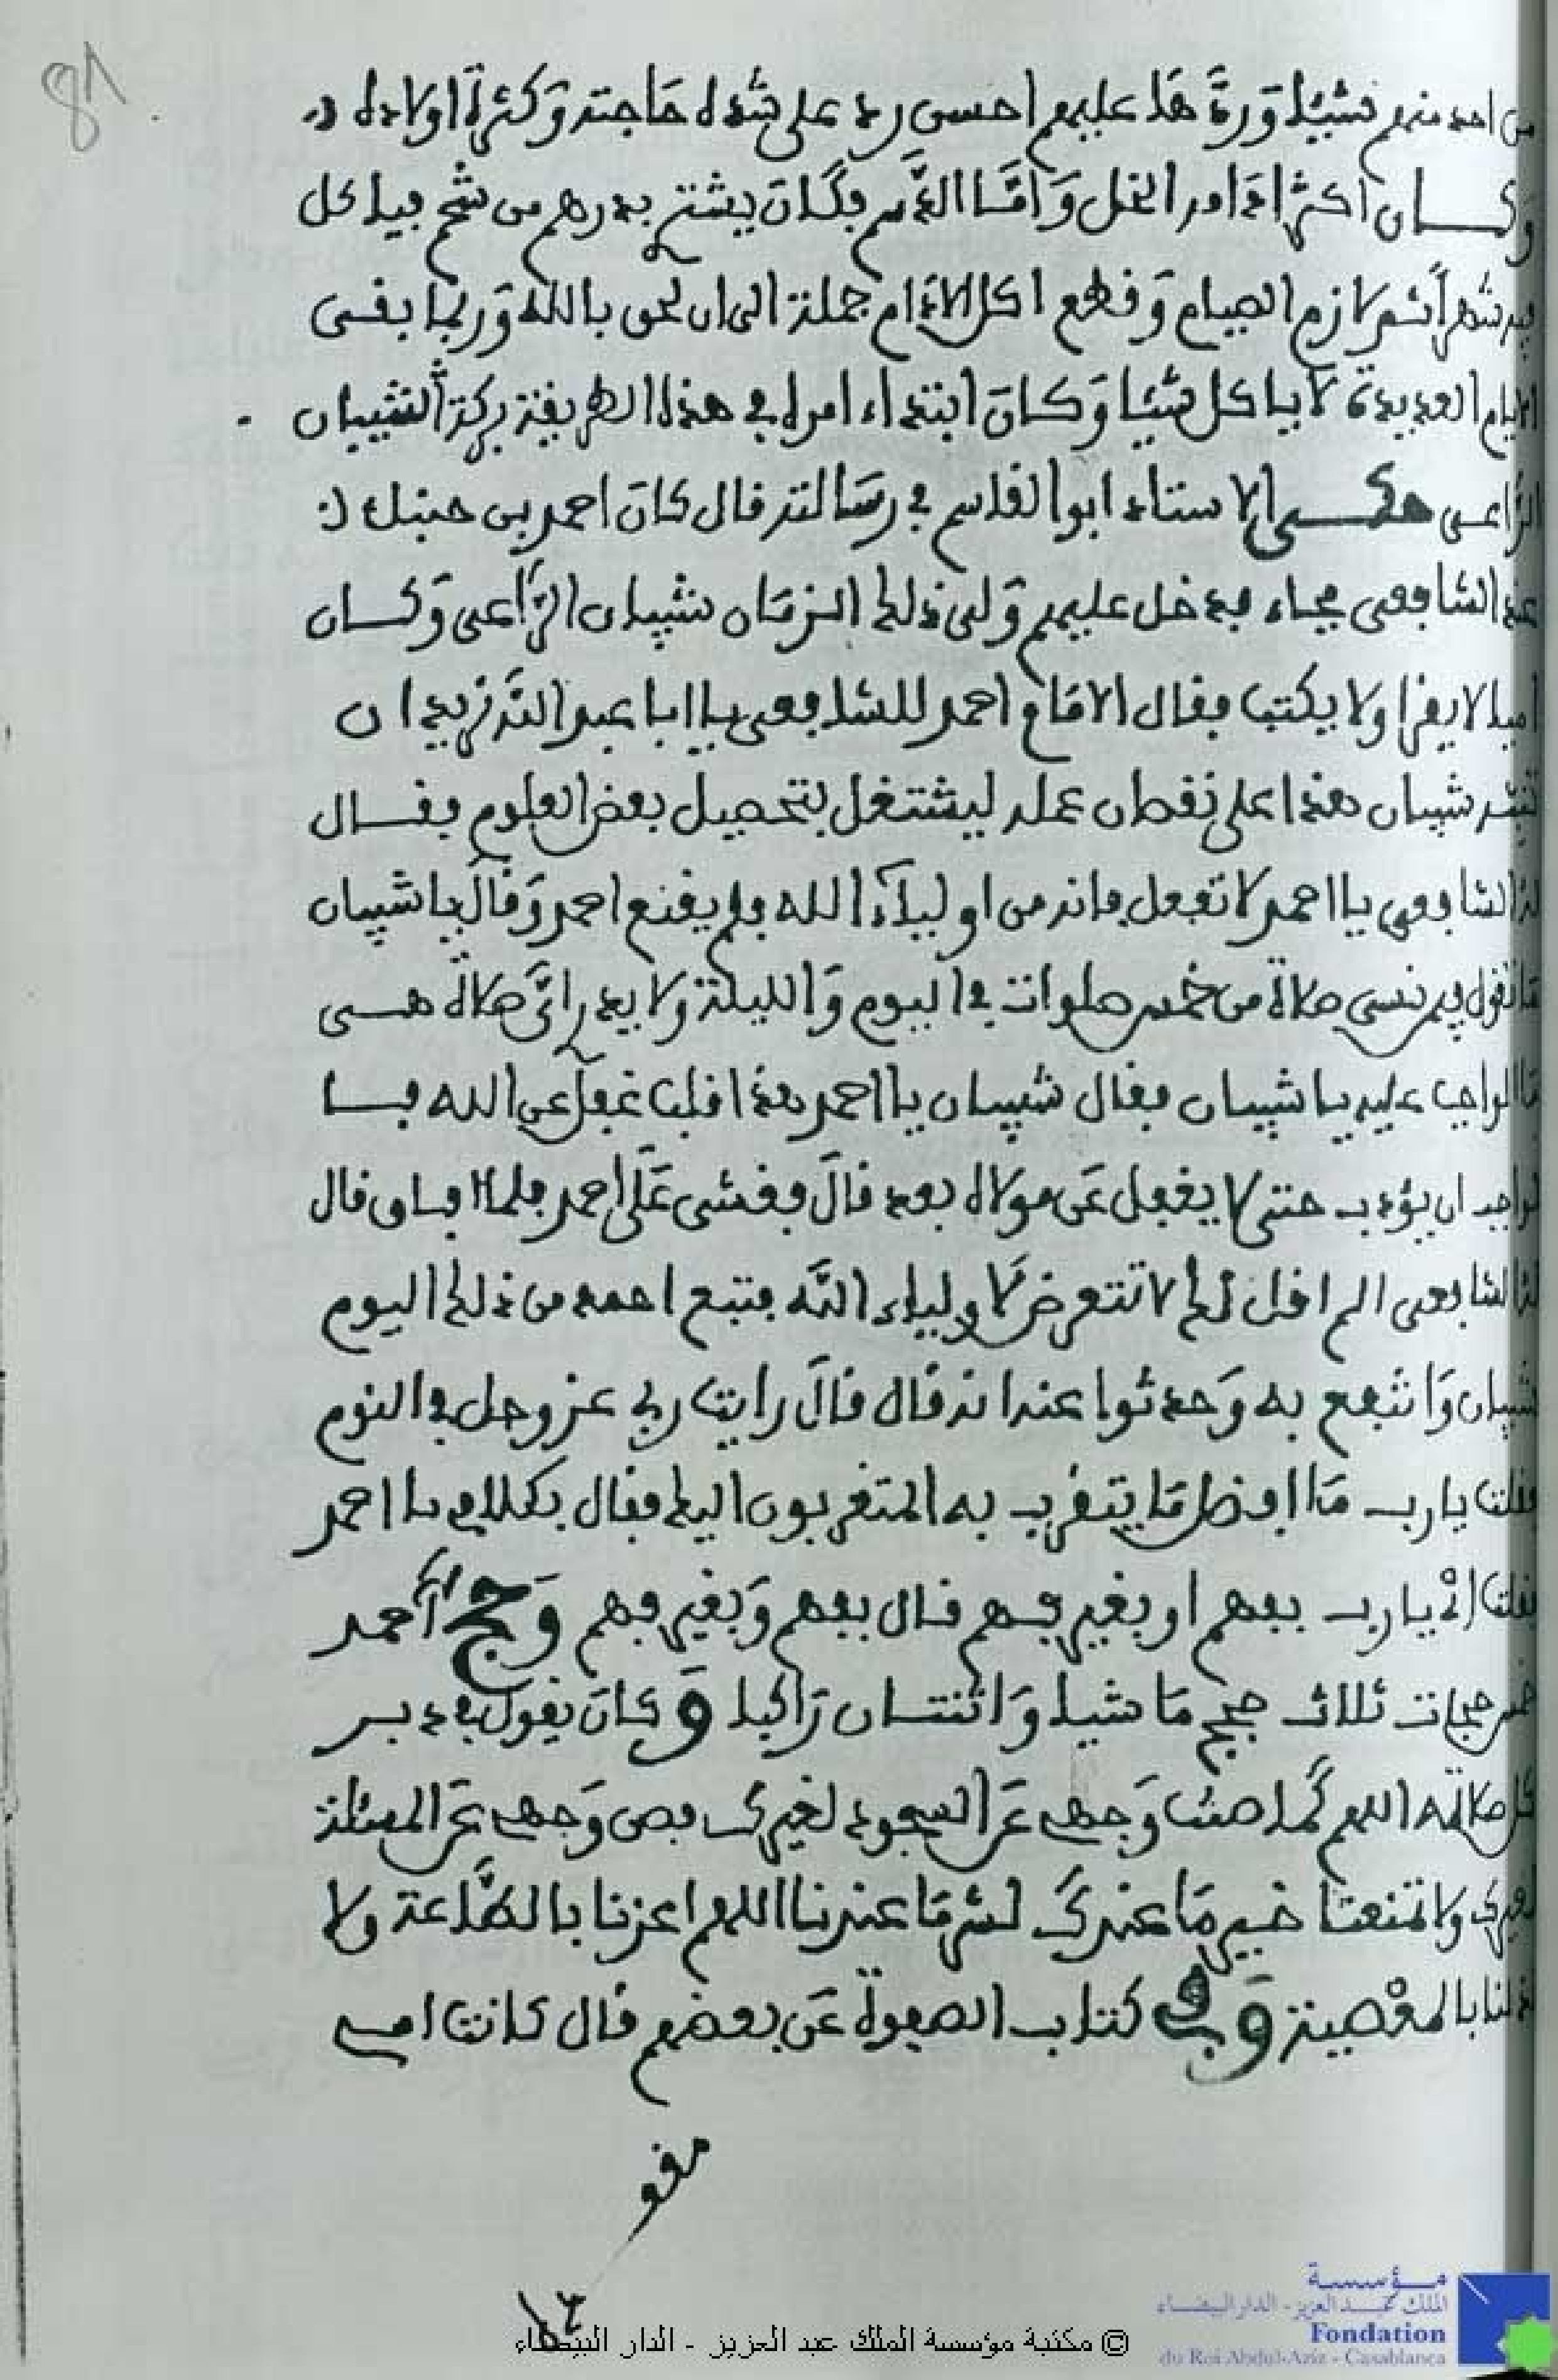 81
من احد منهم شيئا وردها عليهم احسن رد على شدة حاجته وكثرة اولاده
وكان اكثر ادامه الخل وَامَّا الدسم فكَانَ يشتري بدرهم من شحم فياكل
منه شهراً ثم لازم الصيام وَقطع اكل الاِدَام جملة الى ان لحق بالله وَربما بقى
الايام العديدة لا ياكل شيئا وَكَانَ ابتداء امره في هذه الطريقة بركة الشيبان
الرَّاعى حكى الاستاذ ابو القاسم في رسَالته قال كانَ احمد بن حنبل
عند الشافعى فجاء فدخل عليهم وَلى ذلك الزمَان شيبان الرَّاعى وَكان
اميا لا يقرا ولا يكتب فقال الامَام احمد للشافعى يا ابا عبد الله نريد ان
ننبه شيبان هذا على نقصان عمله ليشتغل بتحصيل بعض العلوم فقال
له الشافعى يا احمد لا تفعل فانه من اوليآء الله فلم يقنع احمد وَقالَ يا شيبان
مَا تقول فيمن نسى صلاة من خمس صلوات في اليوم وَالليلة ولا يدرِ اىَّ صلاة هى
مَا الواجب عليه يا شيبان فقال شيبان يا احمد هذا قلب غفل عن الله فـا
لواجب ان يؤدب حتى لا يغفل عَن مولاه بعد قالَ فغشى عَلَى احمد فلما افاق قال
له الشافعى الم اقل لك لا تتعرض لاَولياء الله فتبع احمد من ذلك اليوم
شيبان وَانتفع به وَحدثوا عنه انه قال قالَ رايت ربى عز وجل في النوم
فقلت يا رب مَا افضل مَا يتقرب به المتقربون اليك فقال بكلامى يا احمد
فقلت يا رب بفهم او بغير فهم قال بفهم وَبغير فهم وَحج أحمد
خمس حجات ثلاث حجج مَاشيا وَاثنتان رَاكبا وَكانَ يقول في دبر
كل صلاته اللهم كَما صنت وَجهى عَن السجود لغيرك فصن وَجهى عَن المسئلة
لغيرك ولا تمنعنا خير مَا عندكَ لشر مَا عندنا اللهم اعزنا بالطَّاعة ولا
تذلنا بالمعْصية وَفي كتاب الصفوة عَن بعضهم قال كانت امى
© مكتبة مؤسسة الملك عبد العزيز - الدار البيضاء
مؤسسة
الملك عبد العزيز - الدار البيضاء
Fondation
du Roi Abdul-Aziz - Casablanca